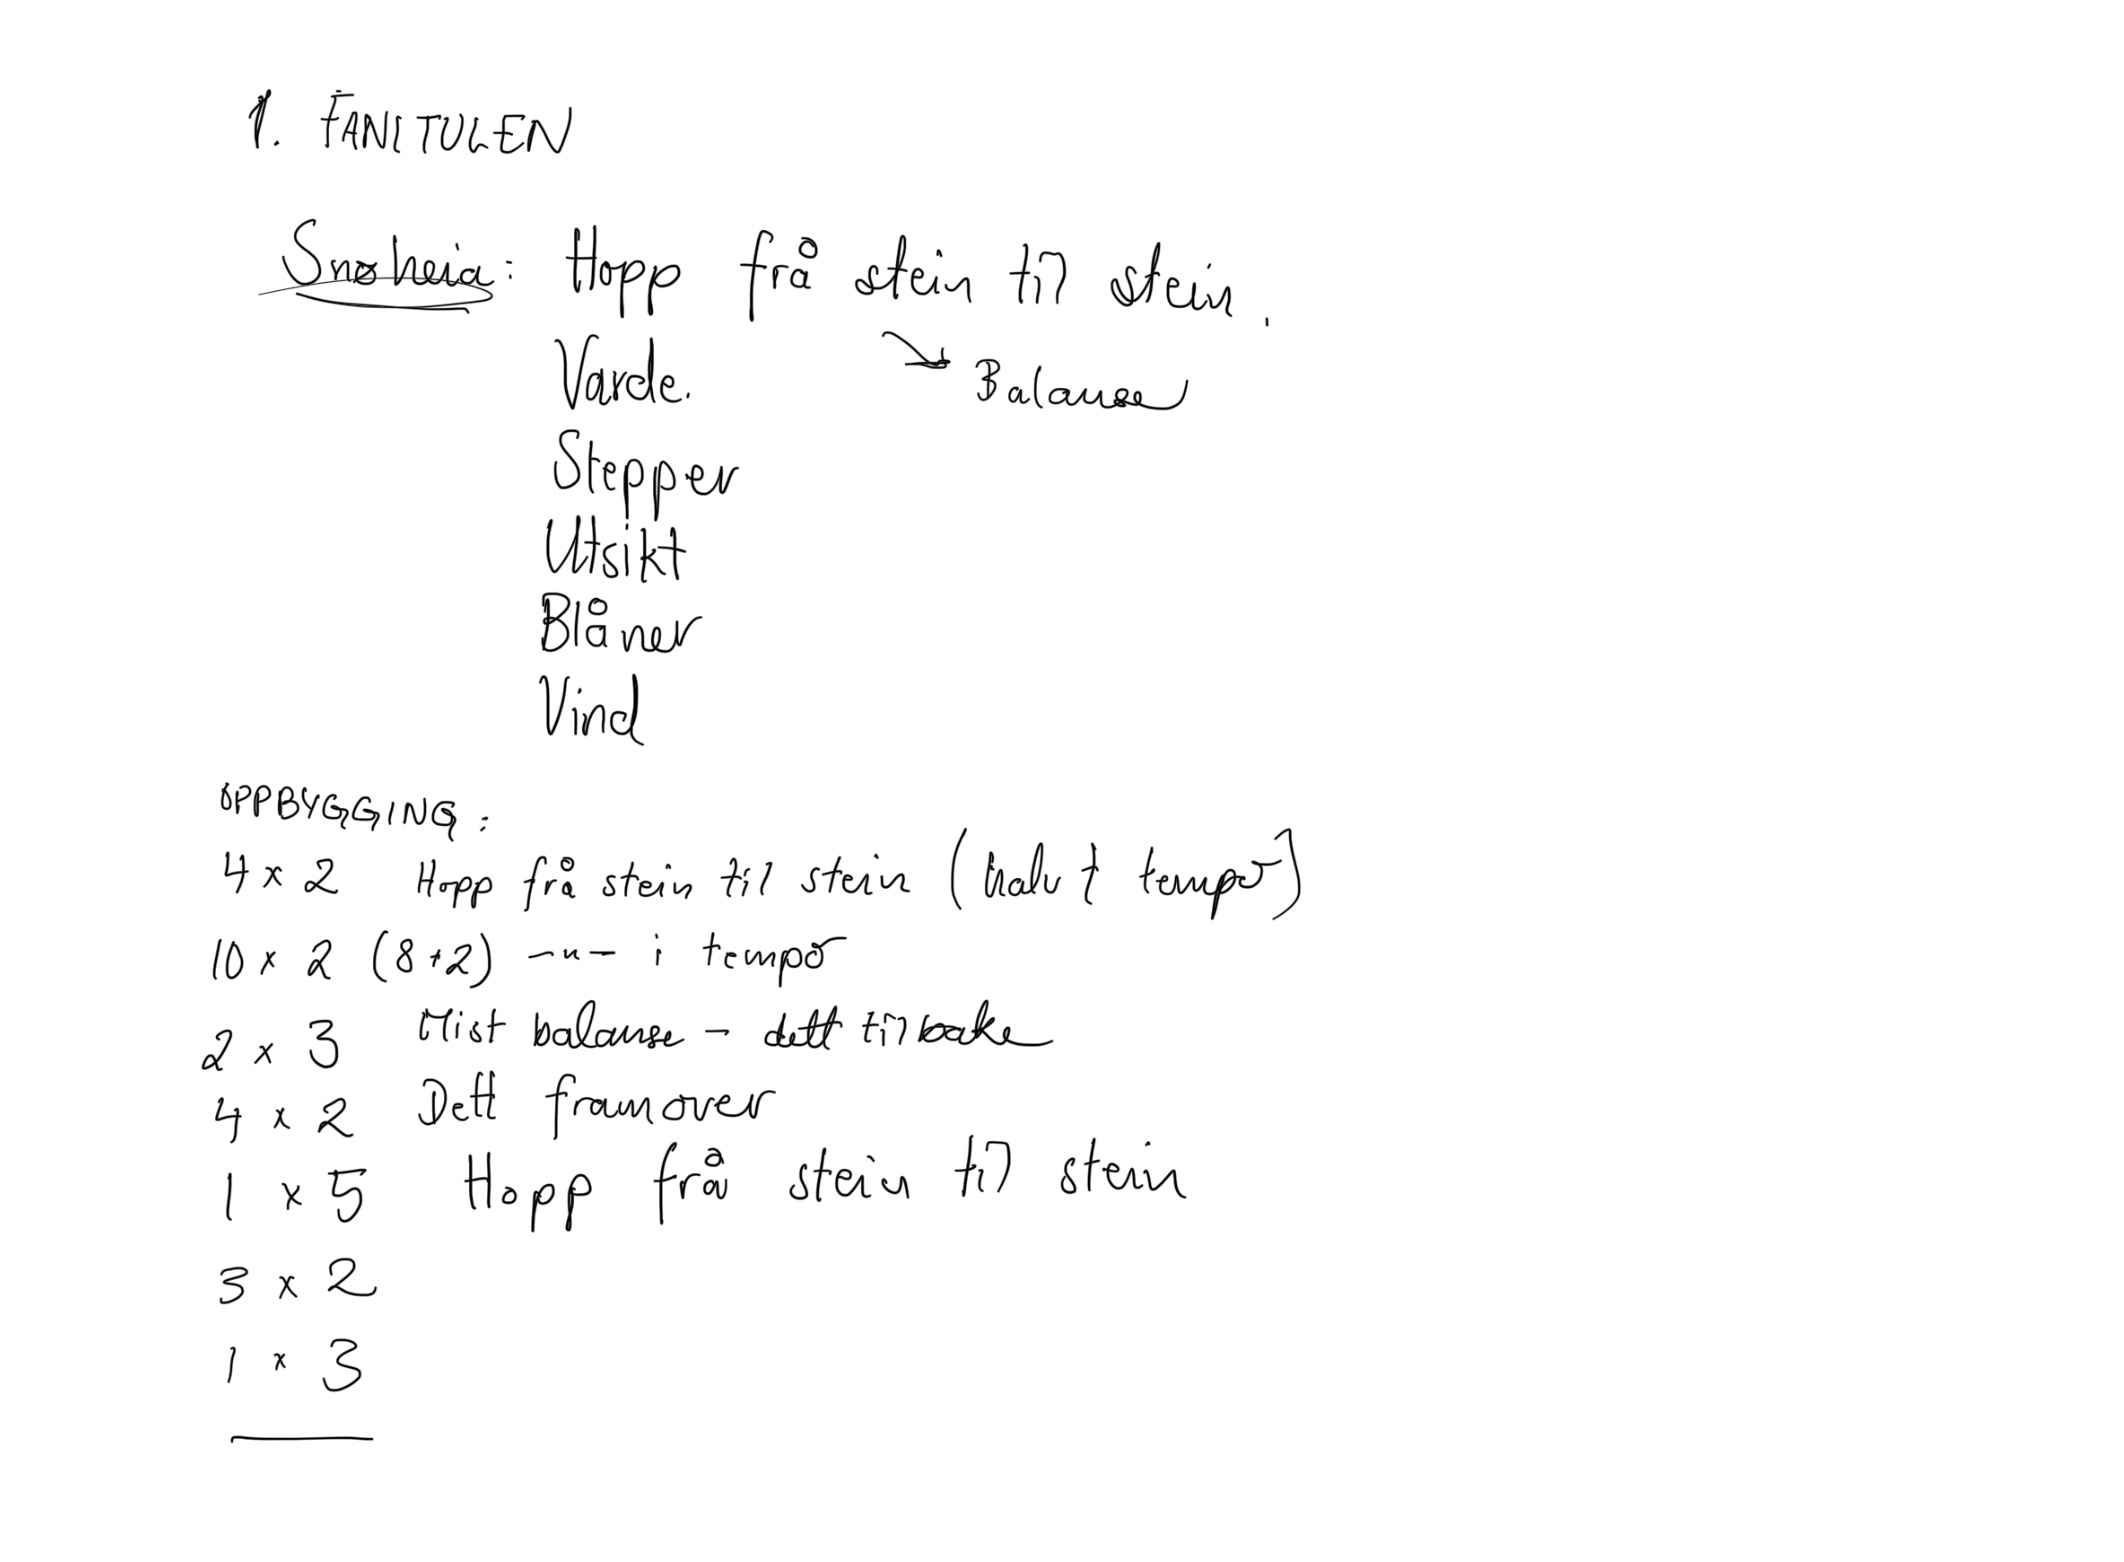 1. FANITULEN
Snøheia: Hopp frå stein til stein.
Varde.
→ Balanse
Stepper
Utsikt
Blåner
Vind
OPPBYGGING:
4 x 2 Hopp frå stein til stein (halvt tempo)
10 x 2 (8+2) —"— i tempo
2 x 3 Mist balanse – dett tilbake
4 x 2 Dett framover
1 x 5 Hopp frå stein til stein
3 x 2
1 x 3